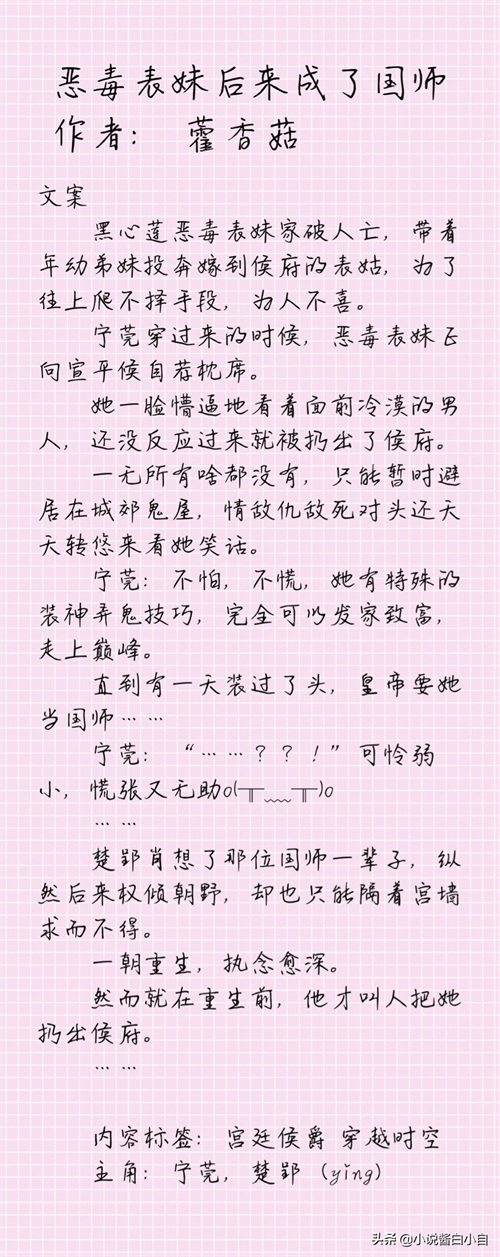 恶毒表妹后来成了国师
作者： 藿香菇
文案
黑心莲恶毒表妹家破人亡，带着
年幼弟妹投奔嫁到侯府的表姑，为了
往上爬不择手段，为人不喜。
宁莞穿过来的时候，恶毒表妹正
向宣平侯自荐枕席。
她一脸懵逼地看着面前冷漠的男
人，还没反应过来就被扔出了侯府。
一无所有啥都没有，只能暂时避
居在城郊鬼屋，情敌仇敌死对头还天
天转悠来看她笑话。
宁莞：不怕，不慌，她有特殊的
装神弄鬼技巧，完全可以发家致富，
走上巅峰。
直到有一天装过了头，皇帝要她
当国师……
宁莞：“……？？！”可怜弱
小，慌张又无助o(╥﹏╥)o
……
楚郢肖想了那位国师一辈子，纵
然后来权倾朝野，却也只能隔着宫墙
求而不得。
一朝重生，执念愈深。
然而就在重生前，他才叫人把她
扔出侯府。
……
内容标签：宫廷侯爵 穿越时空
主角：宁莞，楚郢（yǐng）
头条 @小说酱白小自